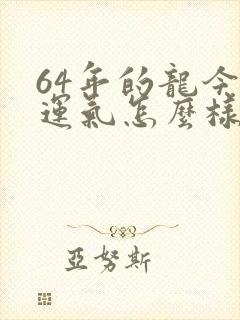 64年的龍今
運氣怎麼樣
亞努斯